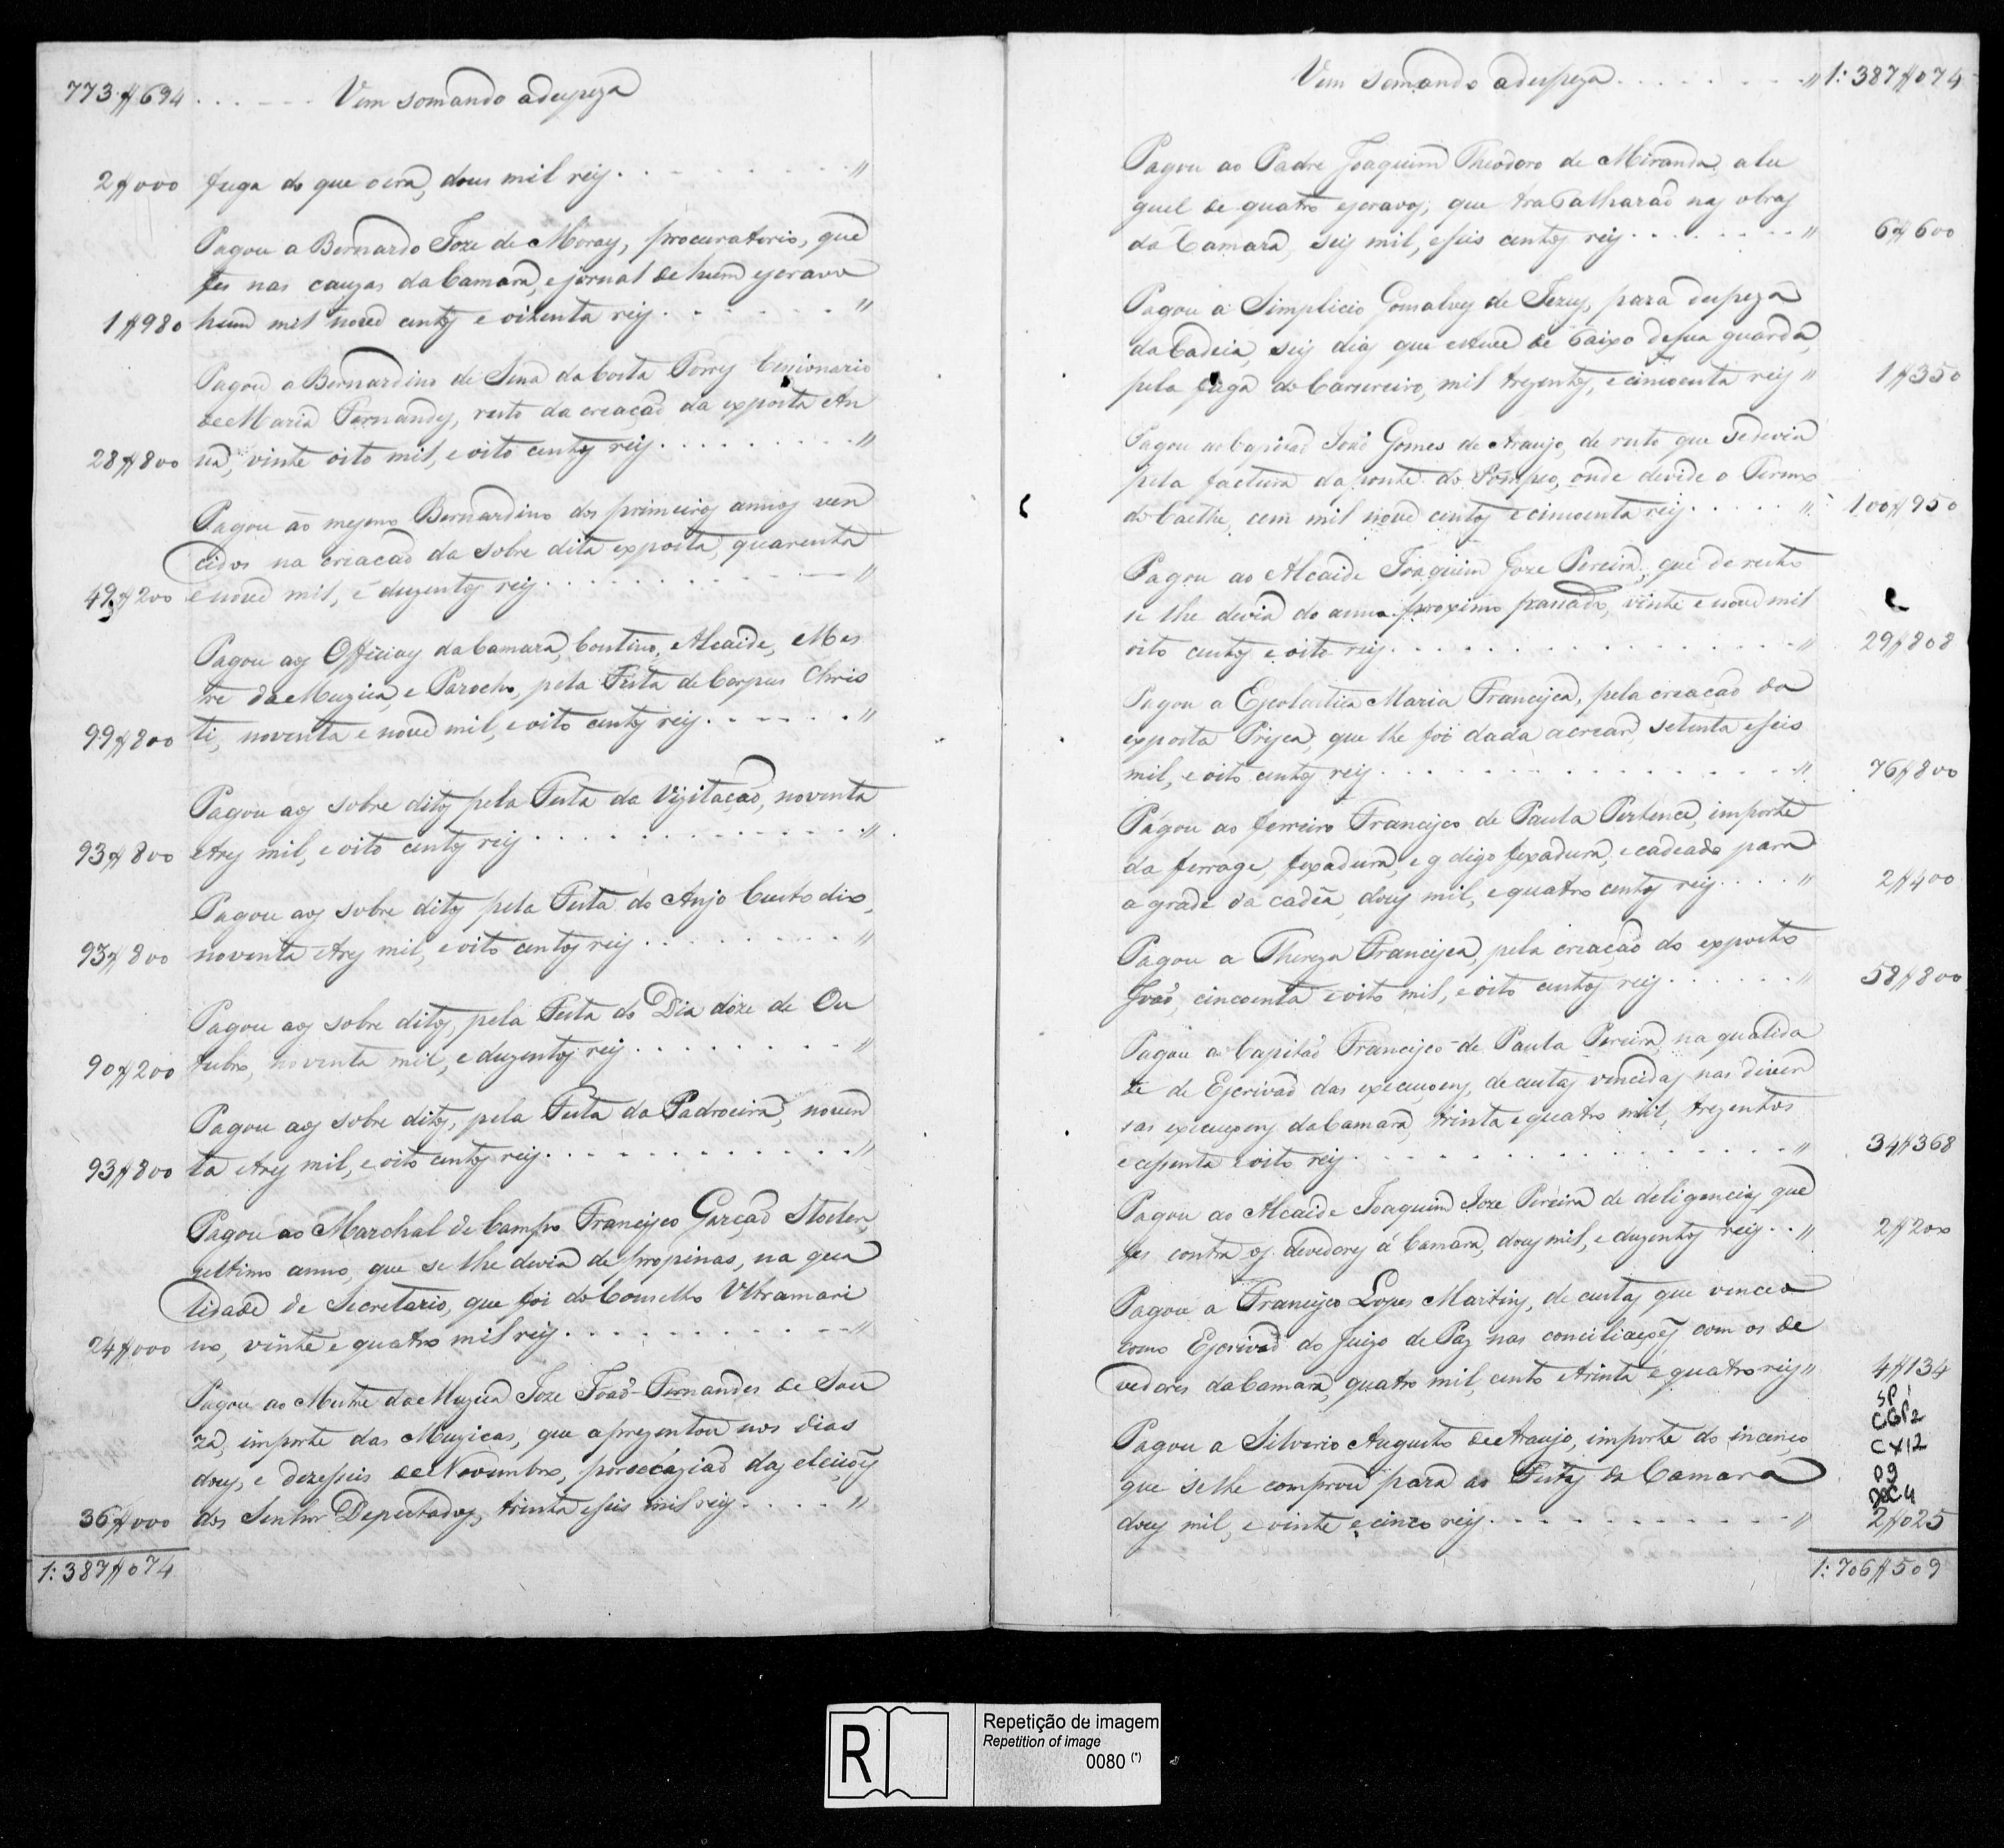 773$694 . . . . . . Vem somando adespeza
2$000 fuga do que oera, dous mil reis . . . . . . . . "
Pagou a Bernardo Joze de Moraes, procuratorio, que
fes nas cauzas da Camara, e jornal de hum escravo
1$980 hum mil nove centos e oitenta reis . . . . . . "
Pagou a Bernardino de Sena da Costa Torres Cessionario
de Maria Fernandes, resto da creação da exposta An
28$800 na, vinte oito mil, e oito centos reis . . . . . . . . . "
Pagou ao mesmo Bernardino dos primeiros annos ven
cidos na criacão da sobre dita exposta, quarenta
49$200 e nove mil, e duzentos reis . . . . . . . . . . "
Pagou aos Officiaes da Camara, Contino, Alcaide, Mes
tre da Muzica, e Parocho, pela Festa de Corpus Chris
99$800 ti, noventa e nove mil, e oito centos reis . . . . . . "
Pagou aos sobre ditos pela Festa da Vizitação, noventa
93$800 e tres mil, e oito centos reis . . . . . . . . . . . . . . "
Pagou aos sobre ditos pela Festa do Anjo Custodio,
93$800 noventa e tres mil, e oito centos reis . . . . . . . . . "
Pagou aos sobre ditos, pela Festa do Dia doze de Ou
90$200 tubro, noventa mil, e duzentos reis . . . . . . . . . "
Pagou aos sobre ditos, pela Festa da Padroeira, noven
93$800 ta e tres mil, e oito centos reis . . . . . . . . . . . . . "
Pagou ao Marchal de Campo Francisco Garcão Stocler,
ultimo anno, que se lhe devia de propinas, na qua
lidade de Secretario, que foi do Conselho Ultramari
24$000 no, vinte e quatro mil reis . . . . . . . . . . . . "
Pagou ao Mestre da Muzica Joze João Fernandes de Sou
za, importe das Muzicas, que aprezentou nos dias
dous, e dezeseis de Novembro, por occazião das eleiçoes
36$000 dos Senhor Deputados, trinta e seis mil reis . . . . "
1:387$074
Vem somando adespeza . . . . . . . . " 1:387$074
Pagou ao Padre Joaquim Theodoro de Miranda, alu
guel de quatro escravos, que trabalharão nas obras
da Camara, seis mil, e seis centos reis . . . . . . . . " 6$600
Pagou a Simplicio Gonsalves de Jezus, para despeza
da Cadeia, seis dias que esteve de baixo de sua guarda,
pela fuga do Carsereiro, mil trezentos, e cincoenta reis " 1$350
Pagou ao Capitão João Gomes de Araujo, de resto que se devia
pela factura da ponte do Pompeo, onde devide o Termo
do Caethe, cem mil nove centos e cincoenta reis . . . . . " 100$950
Pagou ao Alcaide Joaquim Joze Pereira, que de resto
se lhe devia do anno proximo passado, vinte e nove mil
oito centos e oito reis . . . . . . . . . . . . . . . . . . " 29$808
Pagou a Escolastica Maria Francisca, pela creação da
exposta Prisca, que lhe foi dada a crear, setenta e seis
mil, e oito centos reis . . . . . . . . . . . . . . . . . . " 76$800
Pagou ao ferreiro Francisco de Paula Pertence, importe
da ferrage, fexadura, e g digo fexadura, e cadeado para
a grade da cadêa, dous mil, e quatro centos reis . . . . " 2$400
Pagou a Thereza Francisca, pela criacão do exposto
João, cincoenta e oito mil, e oito centos reis . . . . . . . " 58$800
Pagou ao Capitão Francisco de Paula Pereira, na qualida
de de Escrivão das execuçoens, de custas vencidas nas diver
sas execuçoens da Camara, trinta e quatro mil, trezentos
e cessenta e oito reis . . . . . . . . . . . . . . . . . . " 34$368
Pagou ao Alcaide Joaquim Joze Pereira de deligencias que
fes contra os devedores á Camara, dous mil, e duzentos reis . . " 2$200
Pagou a Francisco Lopes Martins, de custas que venceo
como Escrivão do Juizo de Paz nas conciliaçoes com os de
vedores da Camara, quatro mil, cento e trinta e quatro reis " 4$134
SP
CGP2
CX12
P9
DOC4
Pagou a Silverio Augusto de Araujo, importe do incenço
que se lhe comprou para as Festas da Camara
dous mil, e vinte e cinco reis . . . . . . . . . . . . . " 2$025
1:706$509
R
Repetição de imagem
Repetition of image
0080 (*)